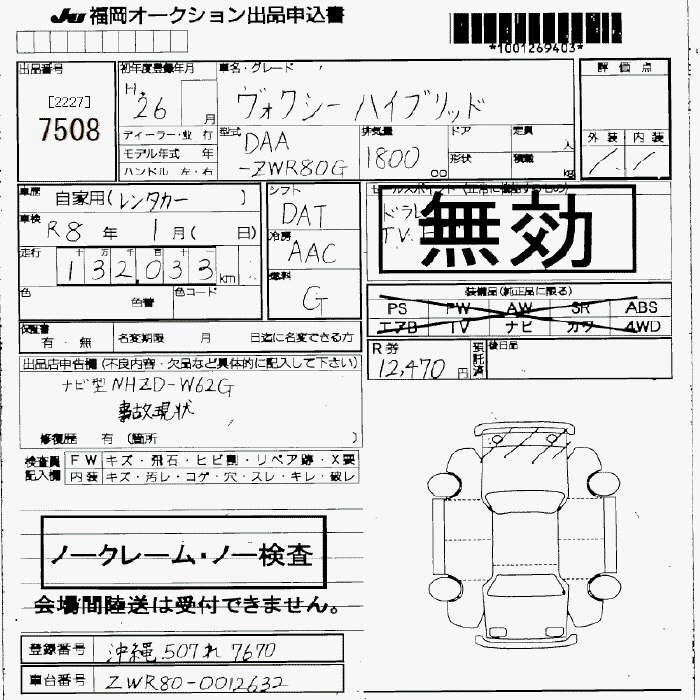 JU 福岡オークション出品申込書
*1001269403*
出品番号
[2227]
7508
初年度登録年月
H. 26 月
車名・グレード
ヴォクシー ハイブリッド
評価点
外装 内装
ディーラー・並 行
モデル年式 年
ハンドル 左・右
型式
DAA
-ZWR80G
排気量
1800 cc
ドア
形状
定員 人
積載 kg
車歴 自家用(レンタカー )
車検 R8 年 1 月( 日)
走行 十 万 千 百 十 一
132,033 km
色 色替 色コード
シフト
DAT
冷房
AAC
燃料
G
セールスポイント(正常に機能するもの)
ドラレ
TV.
無効
装備品(純正品に限る)
PS PW AW SR ABS
エアB TV ナビ カワ 4WD
保証書
有・無
名変期限 月 日迄に名変できる方
R券
12,470 円
預託済
後日品
出品店申告欄(不良内容・欠品など具体的に記入して下さい)
ナビ型NHZD-W62G
事故現状
修復歴 有(箇所 )
検査員 FW キズ・飛石・ヒビ割・リペア跡・X要
記入欄 内装 キズ・汚レ・コゲ・穴・スレ・キレ・破レ
ノークレーム・ノー検査
会場間陸送は受付できません。
登録番号 沖縄 507 れ 7670
車台番号 ZWR80-0012632